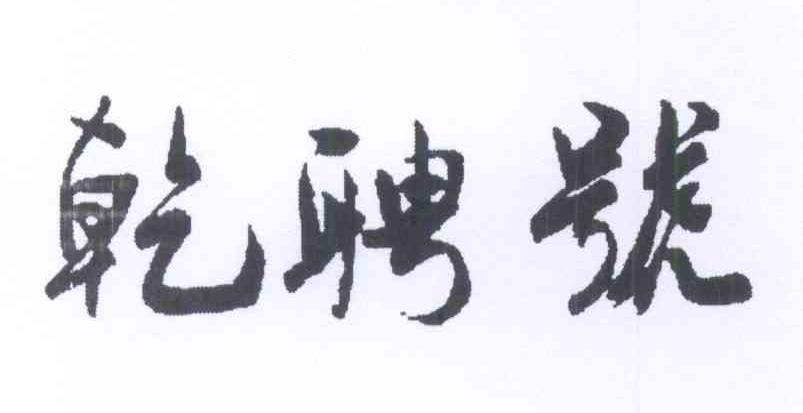 乾聘號